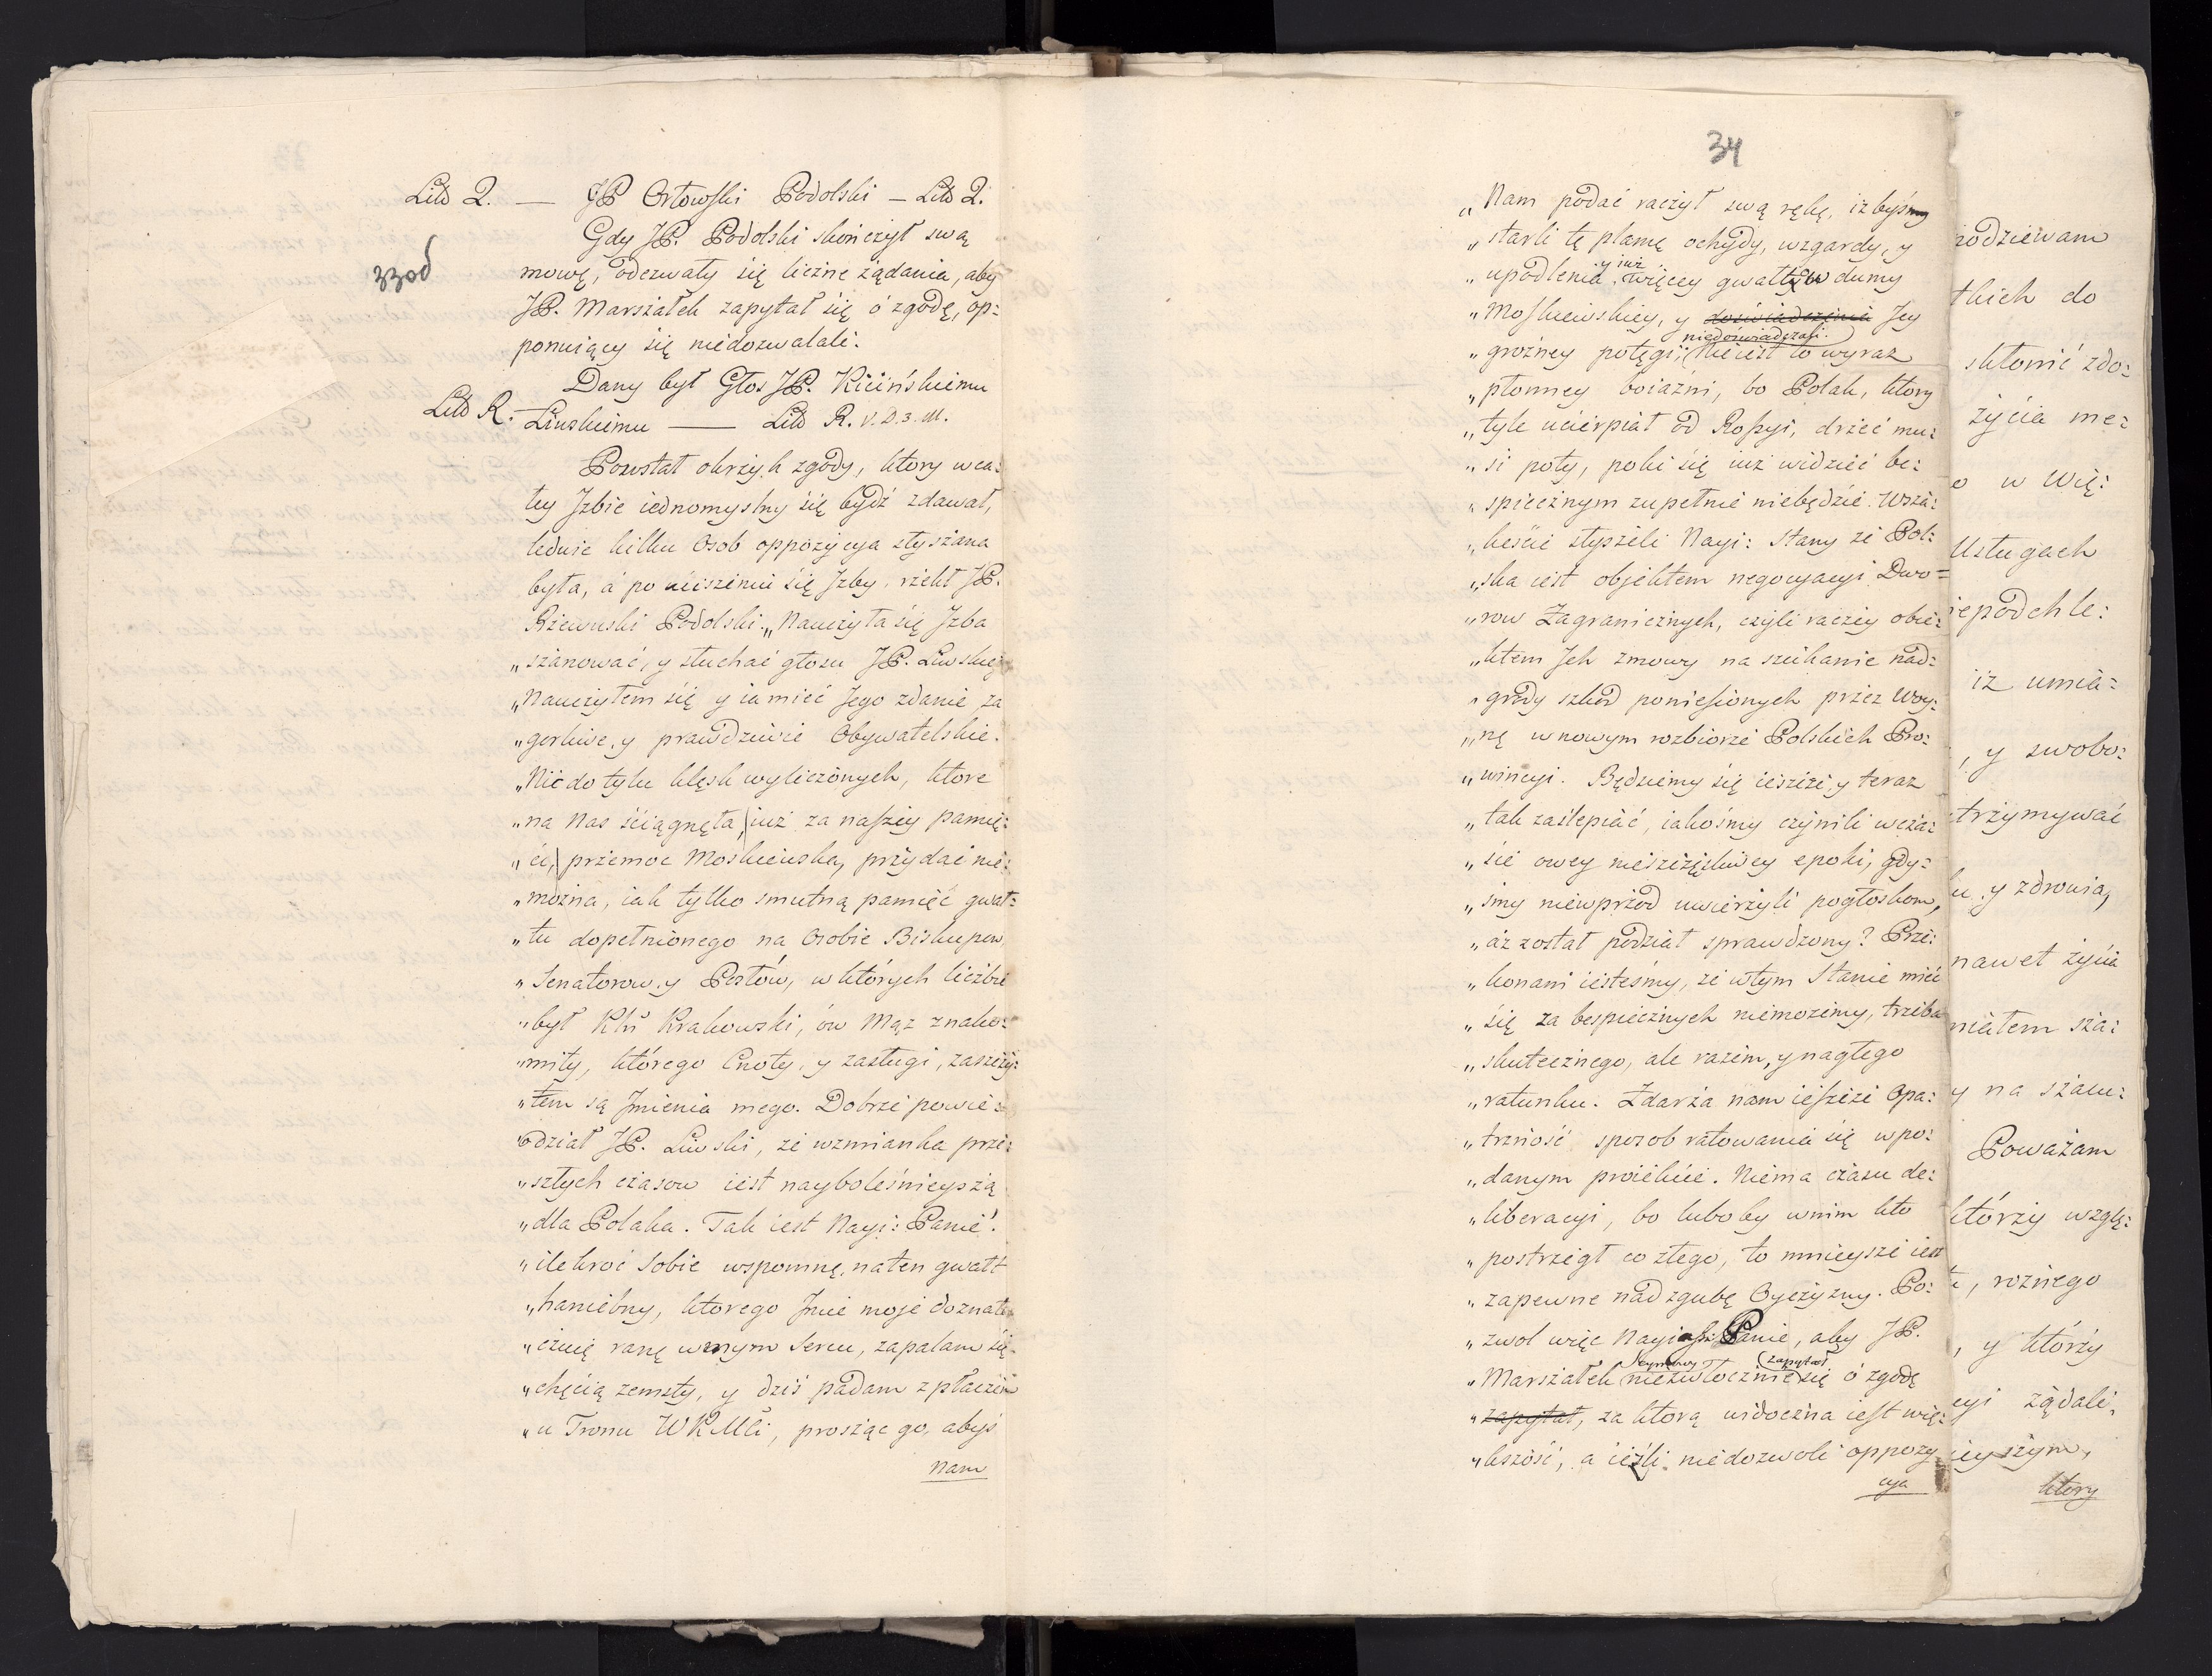 Litt Q. — JP Orłowski Podolski — Litt Q.
Gdy JP. Podolski skończył swą
33об
mowę, odezwały się liczne żądania, aby
JP. Marszałek zapytał się ó zgodę, op:
ponuiący się niedozwalali.
Dany był Głos JP. Kicińskiemu
Litt R. Liwskiemu — Litt R. V. D. 3. M.
Powstał okrzyk zgody, ktory wca:
łey Jzbie iednomyślny się bydź zdawał,
ledwie kilku Osob oppozycya słyszana
była, á po uciszeniu się Jzby, rzekł JP.
Rzewuski Podolski. „Nauczyła się Jzba
„szanować, y słuchać głosu JP. Liwskieg
„Nauczyłem się y ia mieć Jego zdanie za
„gorliwe, y prawdziwie Obywatelskie.
„Nic do tylu klęsk wyliczonych, ktore
„na Nas ściągnęła, iuż za naszey pamię:
„ci, przemoc Moskiewska, przydać nie:
„można, iak tylko smutną pamięć gwał:
„tu dopełnionego na Osobie Biskupow,
„Senatorow, y Posłów, w których liczbie
„był Kłń Krakowski, ów Mąż znako:
„mity, którego Cnoty, y zasługi, zaszczy:
„tem są Jmienia mego. Dobrze powie:
„dział JP. Liwski, że wzmianka prze:
„szłych czasow iest nayboleśnieyszą
„dla Polaka. Tak iest Nayi: Panie!
„ilekroć sobie wspomnę, na ten gwałt
„haniebny, ktorego Jmie moje doznało
„czuię ranę w mym Sercu, zapalam się
„chęcią zemsty, y dziś padam z płaczem
„u Tronu WKMCi, prosząc go, abyś
Nam
34
„Nam podać raczył swą rękę, iżbyśmy
„starli tę plamę ochydy, wzgardy, y
„upodlenia, y iuż więcey gwałtów dumy
„Moskiewskiey, y doświadczenia Jey
niedoświadczali.
„groźney potęgi; Nie iest to wyraz
„płonney boiaźni, bo Polak, ktory
„tyle ucierpiał od Rossyi, drżeć mu:
„si poty, poki się iuż widzieć be:
„spiecznym zupełnie niebędzie. Wsza:
„keście słyszeli Nayi: Stany że Pol:
„ska iest objektem negocyacyi Dwo=
„row Zagranicznych, czyli raczey obie:
„ktem Jch zmowy na szukanie nad:
„grody szkod poniesionych przez Woy:
„nę w nowym rozbiorze Polskich Pro:
„wincyi. Będziemy się ieszcze y teraz
„tak zaślepiać, iakośmy czynili w cza:
„sie owey nieszczęśliwey epoki, gdy:
„śmy niewprzod uwierzyli pogłoskom,
„áż został podział sprawdzony? Prze:
„konani iesteśmy, że w tym Stanie mieć
„się za bespiecznych niemożemy, trzeba
„skutecznego, ale razem, y nagłego
„ratunku. Zdarza nam ieszcze Opa:
„trzność sposob ratowania się w po:
„danym proiekcie. Niema czasu de:
„liberacyi, bo luboby w nim kto
„postrzegł co złego, to mnieysze iest
„zapewne nad zgubę Oyczyzny. Po:
„zwol więc Nayiaśi: Panie, aby JP.
„Marszałek Seymowy niezwłocznie zapytał się ó zgodę
„zapytał, za ktorą widoczna iest wię:
„kszość, a ieźli niedozwoli oppozy
cya
rodziewam
tkich do
skłonić zdo:
życia me:
o w Wię:
Usługach
iepodchle:
iż umia:
, y swobo:
trzymywać
ku y zdrowia,
nawet życia
miałem sza:
y na szau:
Poważam
którzy wzglę:
, rożnego
, y którzy
cyi żądali,
ieyszym,
ktory